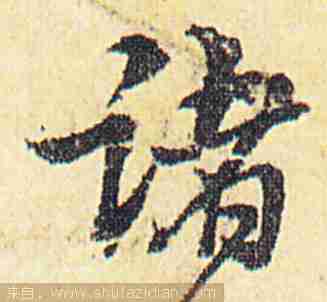 諸
来自:www.shufazidian.com